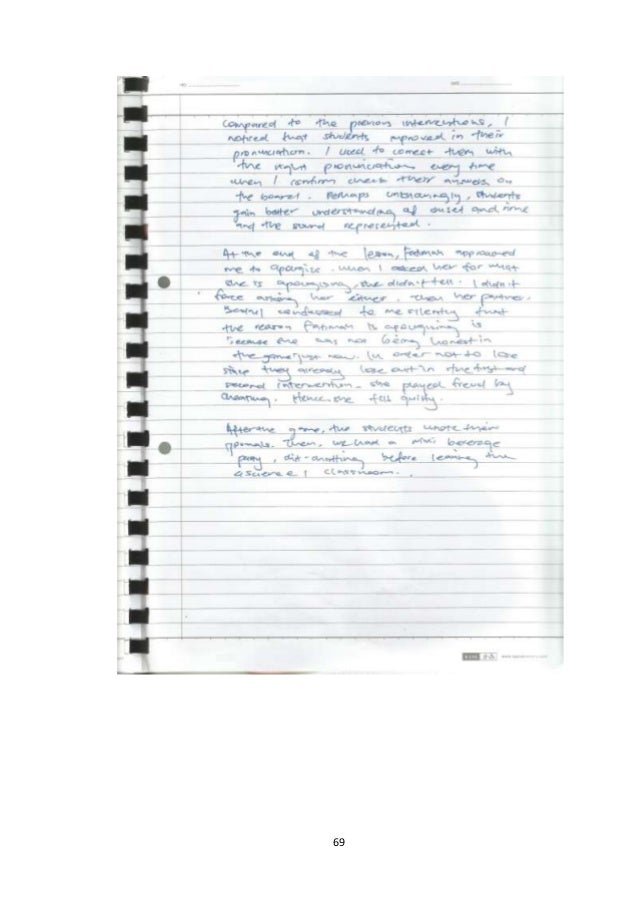 Compared to the previous interventions, I
noticed that students improved in their
pronunciation. I used to correct them with
the right pronunciation every time
when I confirm check their answers on
the board. Perhaps unknowingly, students
gain better understanding of onset and rime
and the sound represented.
At the end of the lesson, Fatimah approached
me to apologise. When I asked her for what
she is apologising, she didn't tell. I didn't
force asking her either. Then her partner,
confessed to me silently that
the reason Fatimah is apologising is
because she was not being honest in
the game just now. In order not to lose
since they already lose out in the first and
second intervention, she played by
cheating. Hence, she felt guilty.
After the game, the students wrote their
journals. Then, we had a mini beverage
party, chit-chatting before leaving the
classroom.
69